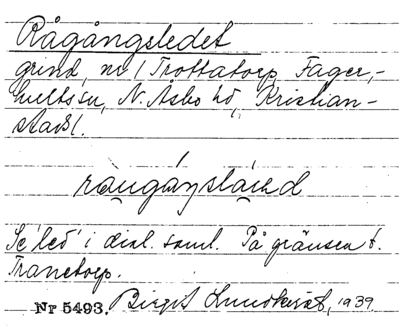 Rågångsledet
grind, nv/ Trottatorp, Fager,-
hults sn, N. Åsbo hd, Kristian-
stads l.
Se 'led' i dial. saml. På gränsen t.
Tranetorp.
Nr 5493. Birgit Lundkvist, 1939.